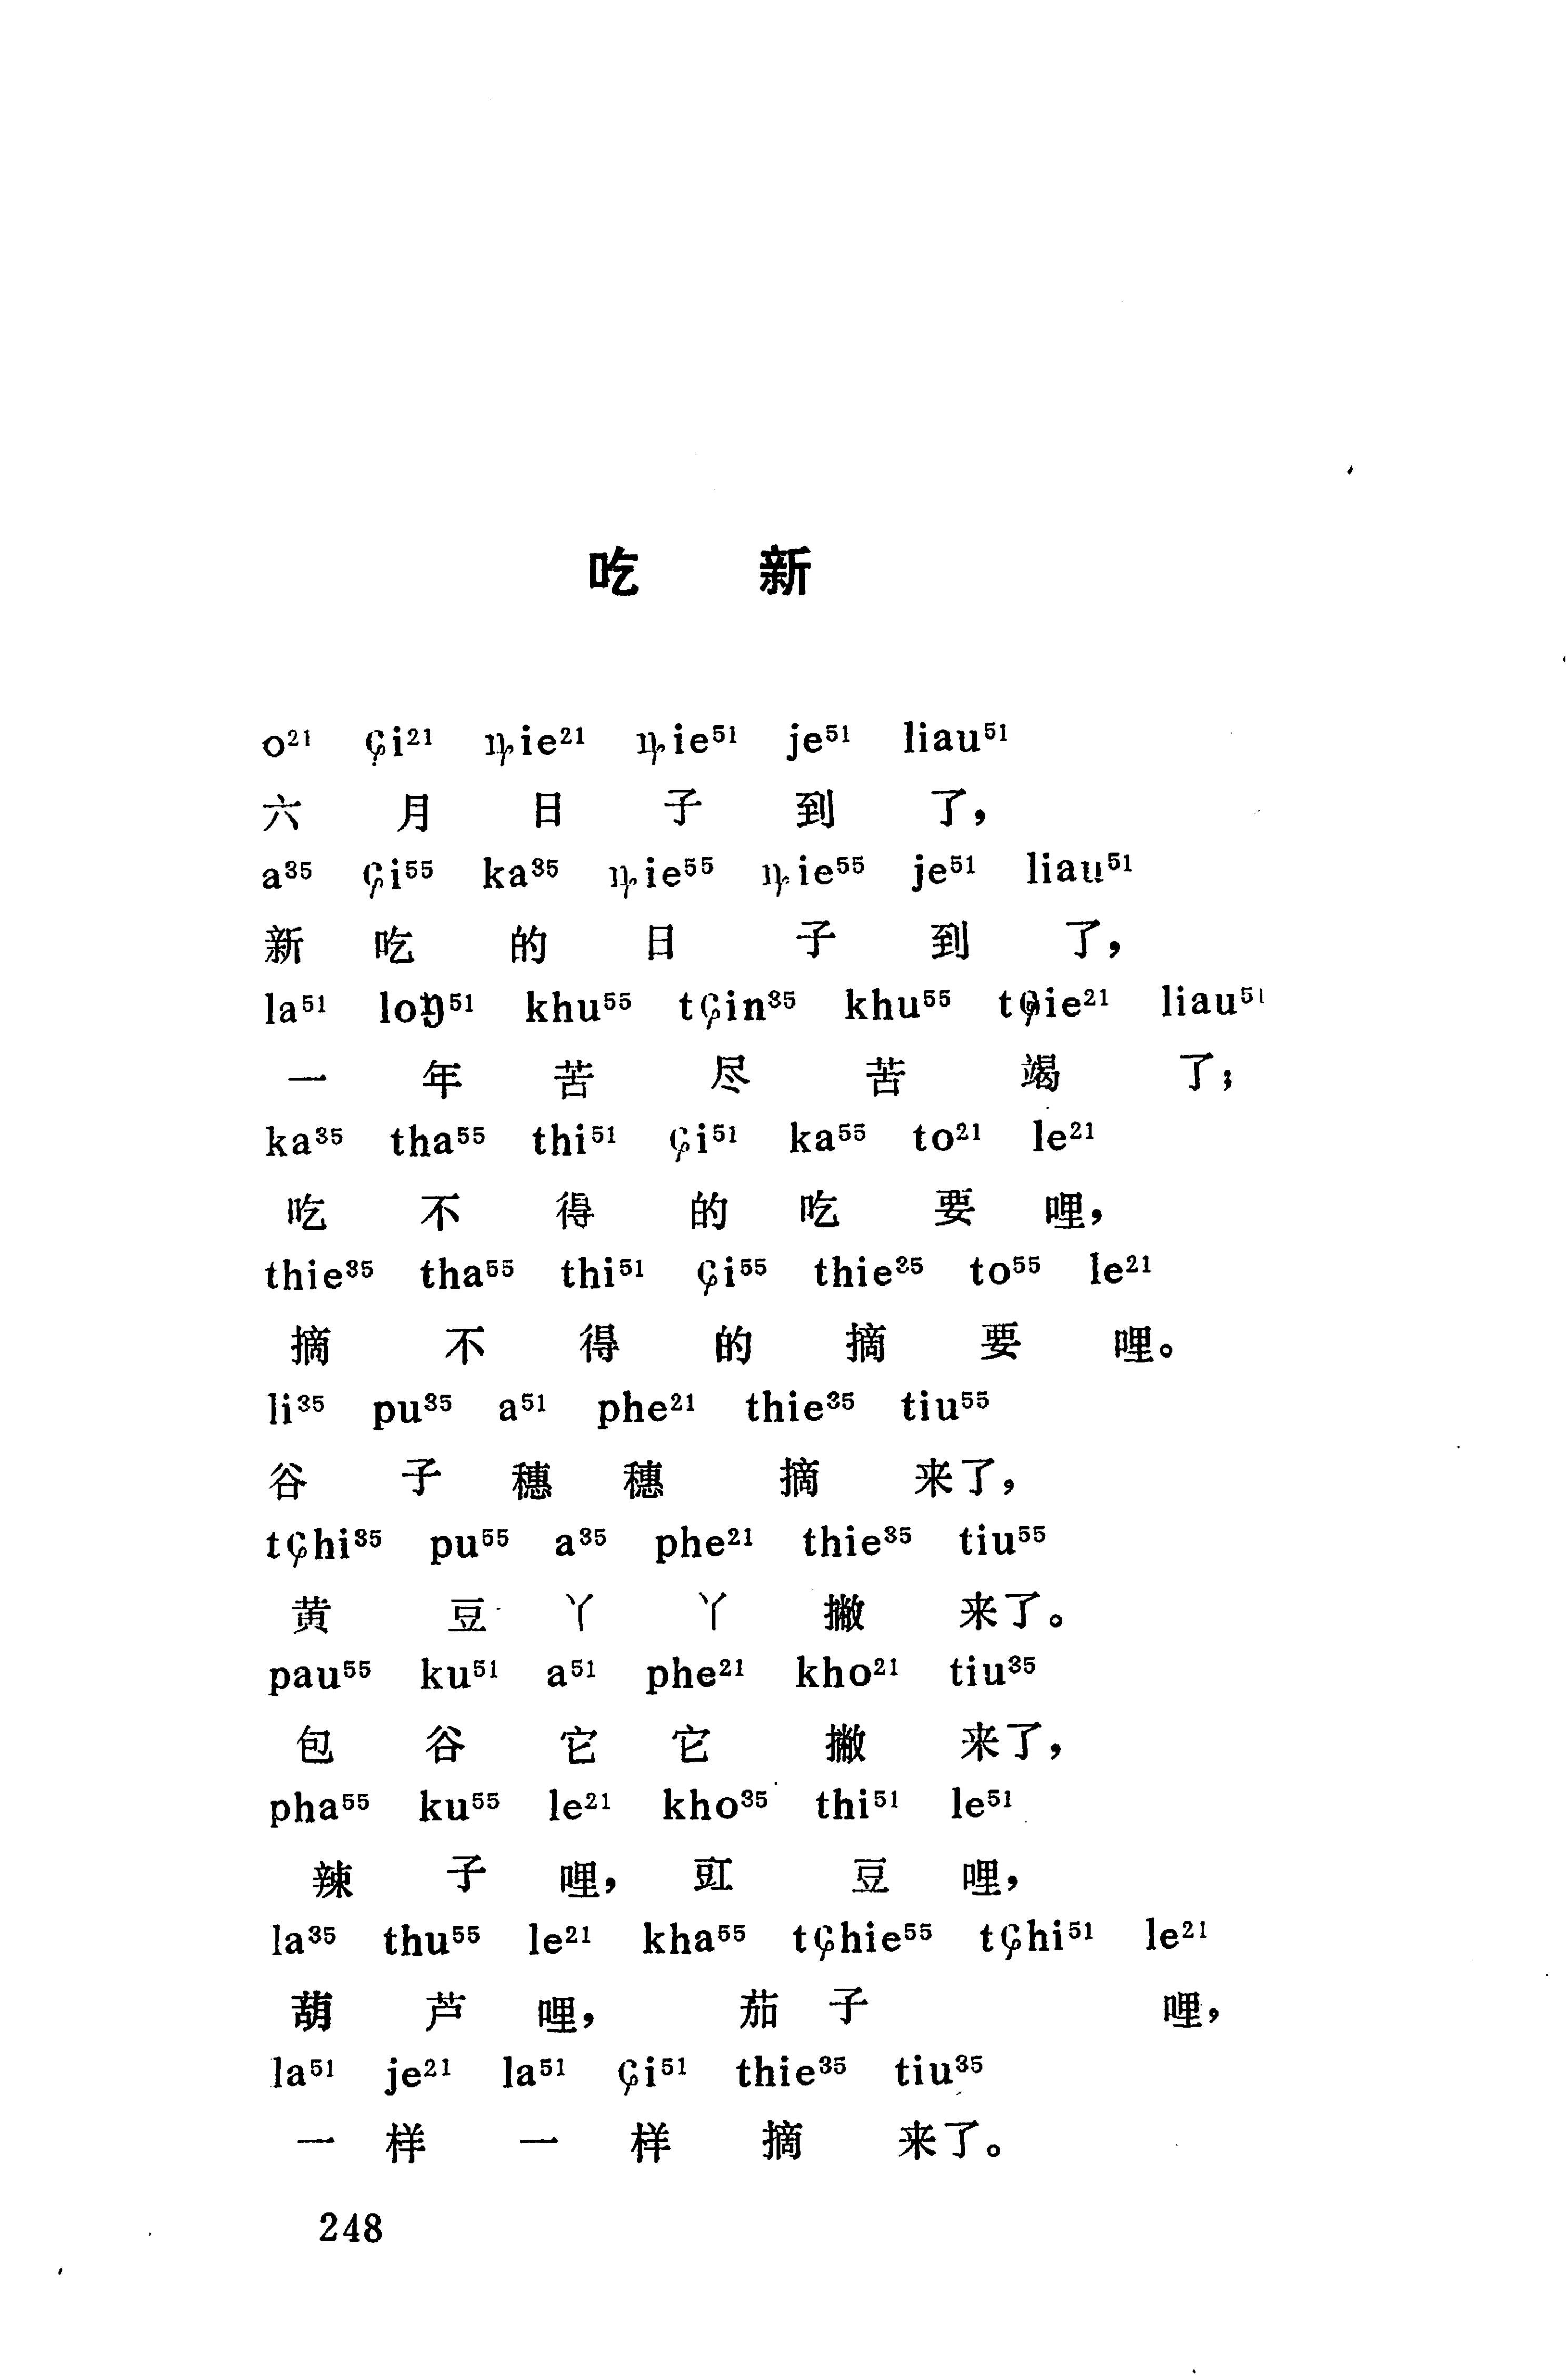 吃 新
o²¹ ɕi²¹ ȵie²¹ ȵie⁵¹ je⁵¹ liau⁵¹
六 月 日 子 到 了，
a³⁵ ɕi⁵⁵ ka³⁵ ȵie⁵⁵ ȵie⁵⁵ je⁵¹ liau⁵¹
新 吃 的 日 子 到 了，
la⁵¹ loŋ⁵¹ khu⁵⁵ tɕin³⁵ khu⁵⁵ tɕie²¹ liau⁵¹
一 年 苦 尽 苦 竭 了；
ka³⁵ tha⁵⁵ thi⁵¹ ɕi⁵¹ ka⁵⁵ to²¹ le²¹
吃 不 得 的 吃 要 哩，
thie³⁵ tha⁵⁵ thi⁵¹ ɕi⁵⁵ thie³⁵ to⁵⁵ le²¹
摘 不 得 的 摘 要 哩。
li³⁵ pu³⁵ a⁵¹ phe²¹ thie³⁵ tiu⁵⁵
谷 子 穗 穗 摘 来了，
tɕhi³⁵ pu⁵⁵ a³⁵ phe²¹ thie³⁵ tiu⁵⁵
黄 豆 丫 丫 撇 来了。
pau⁵⁵ ku⁵¹ a⁵¹ phe²¹ kho²¹ tiu³⁵
包 谷 它 它 撇 来了，
pha⁵⁵ ku⁵⁵ le²¹ kho³⁵ thi⁵¹ le⁵¹
辣 子 哩， 豇 豆 哩，
la³⁵ thu⁵⁵ le²¹ kha⁵⁵ tɕhie⁵⁵ tɕhi⁵¹ le²¹
葫 芦 哩， 茄 子 哩，
la⁵¹ je²¹ la⁵¹ ɕi⁵¹ thie³⁵ tiu³⁵
一 样 一 样 摘 来了。
248